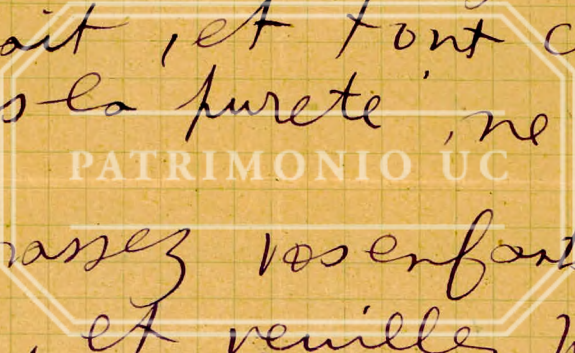 ait, et tout c
s la pureté, ne
PATRIMONIO UC
rassez vos enfants
, et veuillez